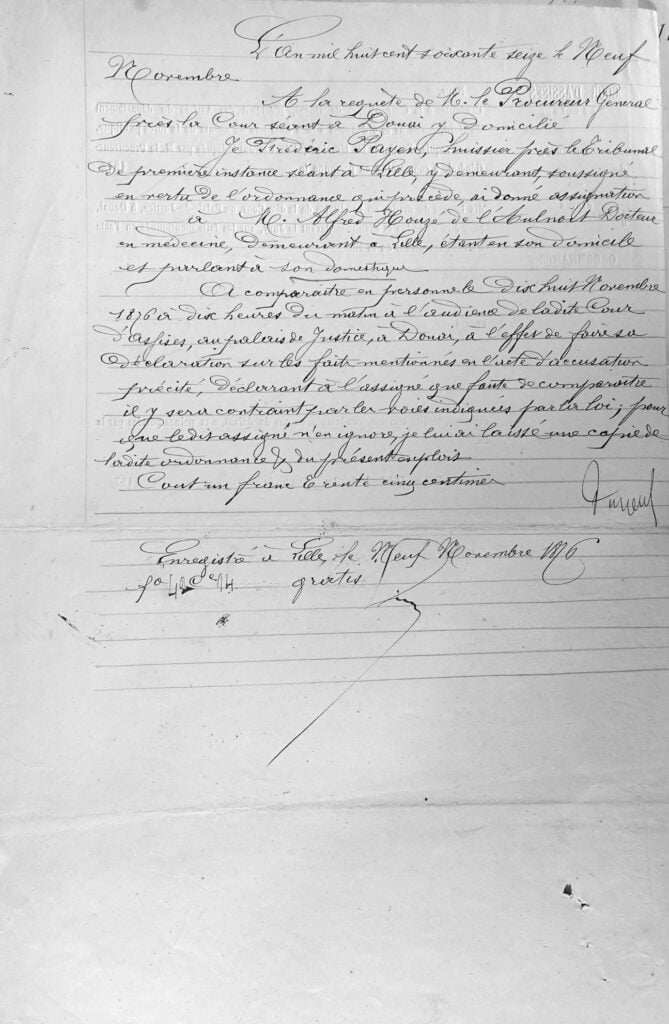 L'An mil huit cent soixante seize le Neuf
Novembre.
A la requête de M. le Procureur Général
près la Cour séant à Douai y domicilié
Je Frédéric Payen, huissier près le Tribunal
de première instance séant à Lille, y demeurant, soussigné
en vertu de l'ordonnance qui précède, ai donné assignation
à M. Alfred Houzé de l'Aulnoit Docteur
en médecine, demeurant à Lille, étant en son domicile
et parlant à son domestique
A comparaître en personne le Dix huit Novembre
1876 à dix heures du matin à l'audience de ladite Cour
d'assises, au palais de Justice, à Douai, à l'effet de faire sa
déclaration sur les faits mentionnés en l'acte d'accusation
précité, déclarant à l'assigné que faute de comparaître
il y sera contraint par les voies indiquées par la loi; pour
que ledit assigné n'en ignore, je lui ai laissé une copie de
ladite ordonnance & du présent exploit
Cout un franc trente cinq centimes
Enregistré à Lille, le Neuf Novembre 1876
fo 42 Ce 14 gratis